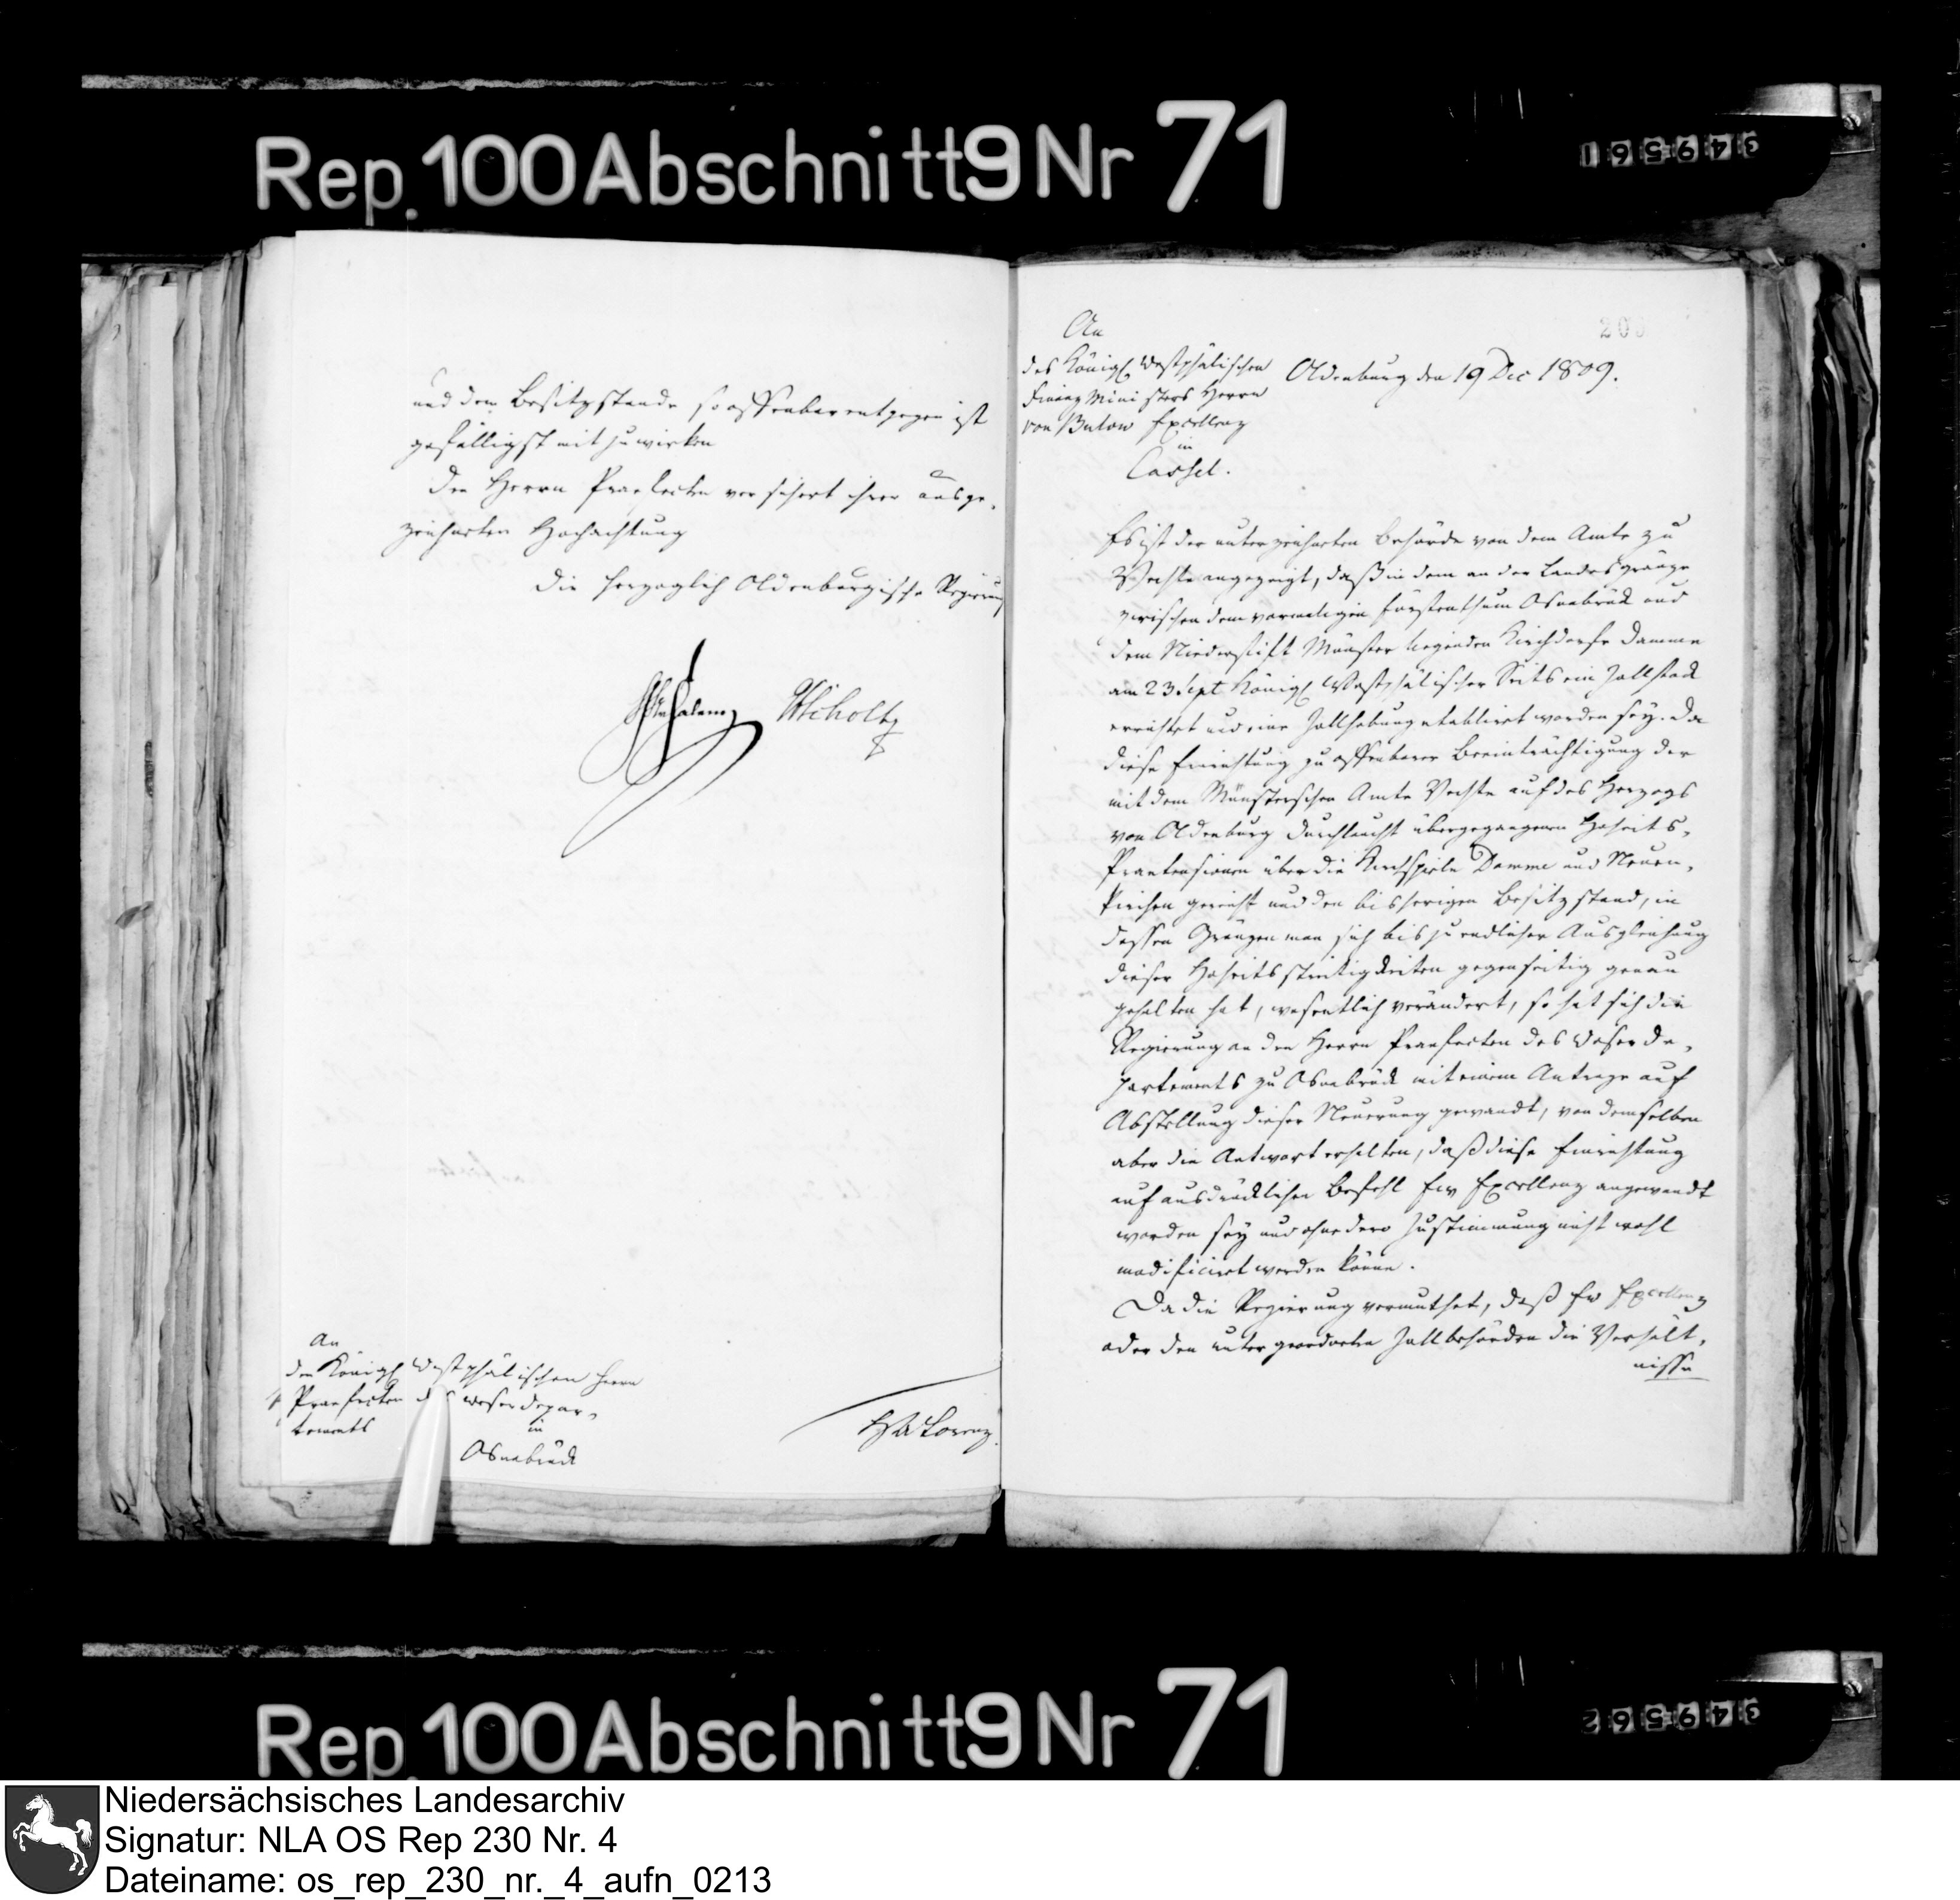 Rep. 100 Abschnitt 9 Nr 71
349561
und dem Besitzstande so offenbar entgegen ist
gefälligst mit zu wirken
Den Herrn Praefecten versichert ihrer ausge-
zeichneten Hochachtung
Die herzoglich Oldenburgische Regierung
An
den Königl Westphälischen Herrn
Praefecten des Weserdepar-
tements
in
Osnabrück
HALorenz.
An
des Königl Westphälischen
Finanz Ministers Herrn
von Bulow Excellenz
in
Cassel.
Oldenburg den 19 Dec 1809.
Es ist der unterzeichneten Behörde von dem Amte zu
Vechta angezeigt, daß in dem an der Landesgränze
zwischen dem vormaligen Fürstenthum Osnabrück und
dem Niederstift Münster liegenden Kirchdorfe Damme
am 23 Sept Königl Westphälischer Seits ein Zollstock
errichtet und eine Zollhebung etabliret worden sey. Da
diese Einrichtung zu offenbarer Beeinträchtigung der
mit dem Münsterschen Amte Vechta auf des Herzogs
von Oldenburg Durchlaucht übergegangenen Hoheits-
Praetensionen über die Kirchspiele Damme und Neuen-
kirchen gereicht und den bisherigen Besitzstand, in
dessen Gränzen man sich bis zu endlicher Ausgleichung
dieser Hoheitsstreitigkeiten gegenseitig genau
gehalten hat, wesentlich verändert, so hat sich die
Regierung an den Herrn Praefecten des Weserde-
partements zu Osnabrück mit einem Antrage auf
Abstellung dieser Neuerung gewandt, von demselben
aber die Antwort erhalten, daß diese Einrichtung
auf ausdrücklichen Befehl Ew Excellenz angewandt
worden sey und ohne dero Zustimmung nicht wohl
modificiret werden könne.
Da die Regierung vermuthet, daß Ew Excellenz
oder den untergeordneten Zollbehörden die Verhält-
nisse
Rep. 100 Abschnitt 9 Nr 71
349562
Niedersächsisches Landesarchiv
Signatur: NLA OS Rep 230 Nr. 4
Dateiname: os_rep_230_nr._4_aufn_0213